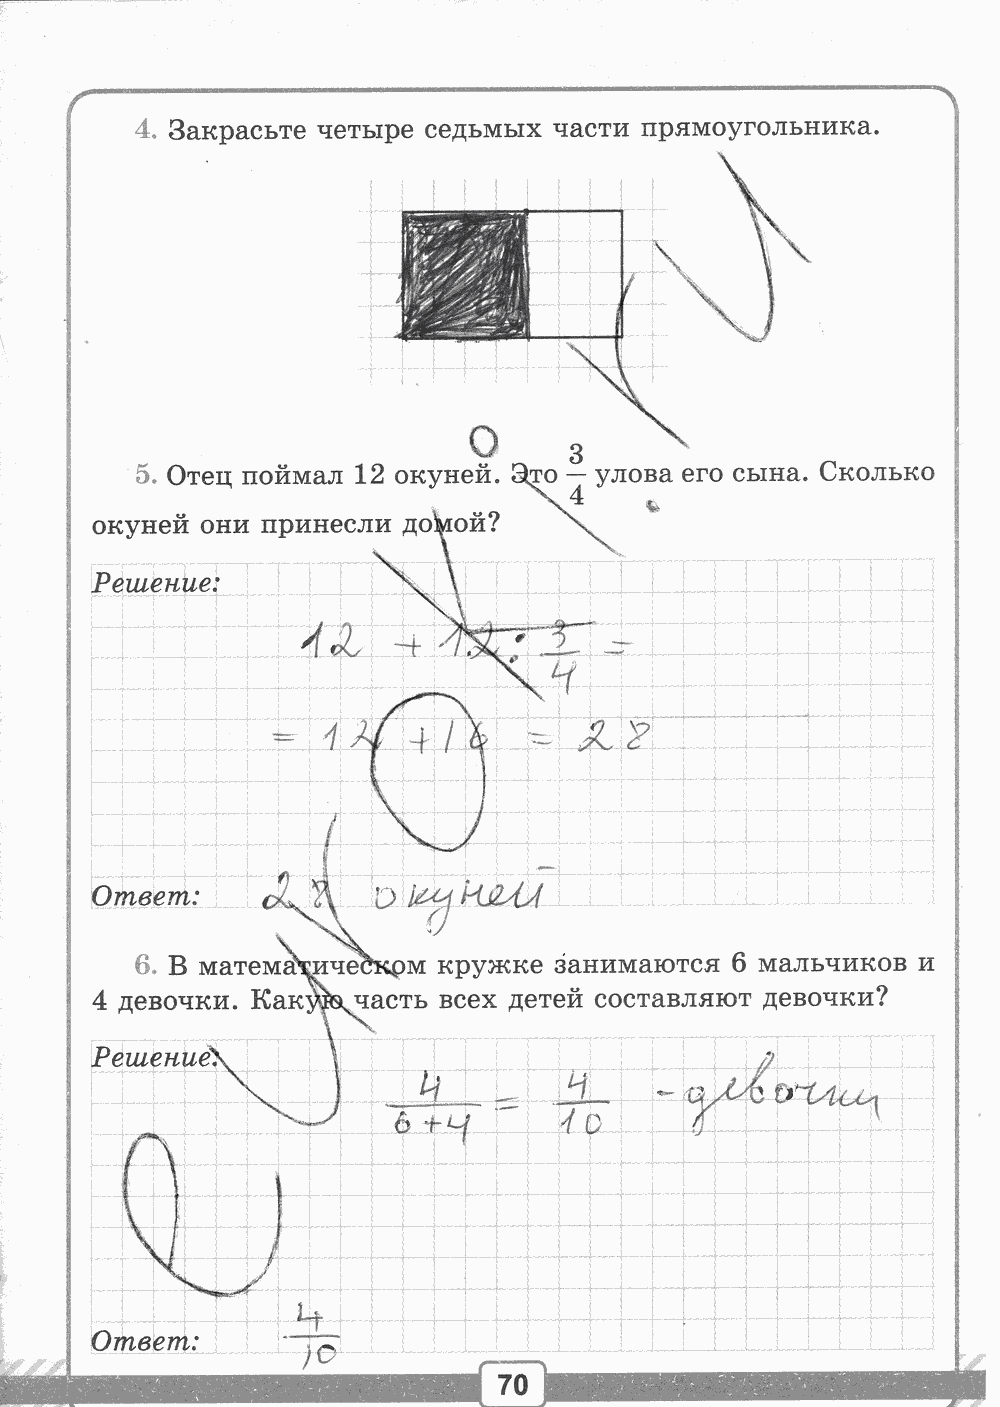 4. Закрасьте четыре седьмых части прямоугольника.
5. Отец поймал 12 окуней. Это 3/4 улова его сына. Сколько
окуней они принесли домой?
Решение:
12 + 12 : 3/4 =
= 12 + 16 = 28
Ответ: 28 окуней
6. В математическом кружке занимаются 6 мальчиков и
4 девочки. Какую часть всех детей составляют девочки?
Решение:
4/(6+4) = 4/10 - девочки
Ответ: 4/10
70